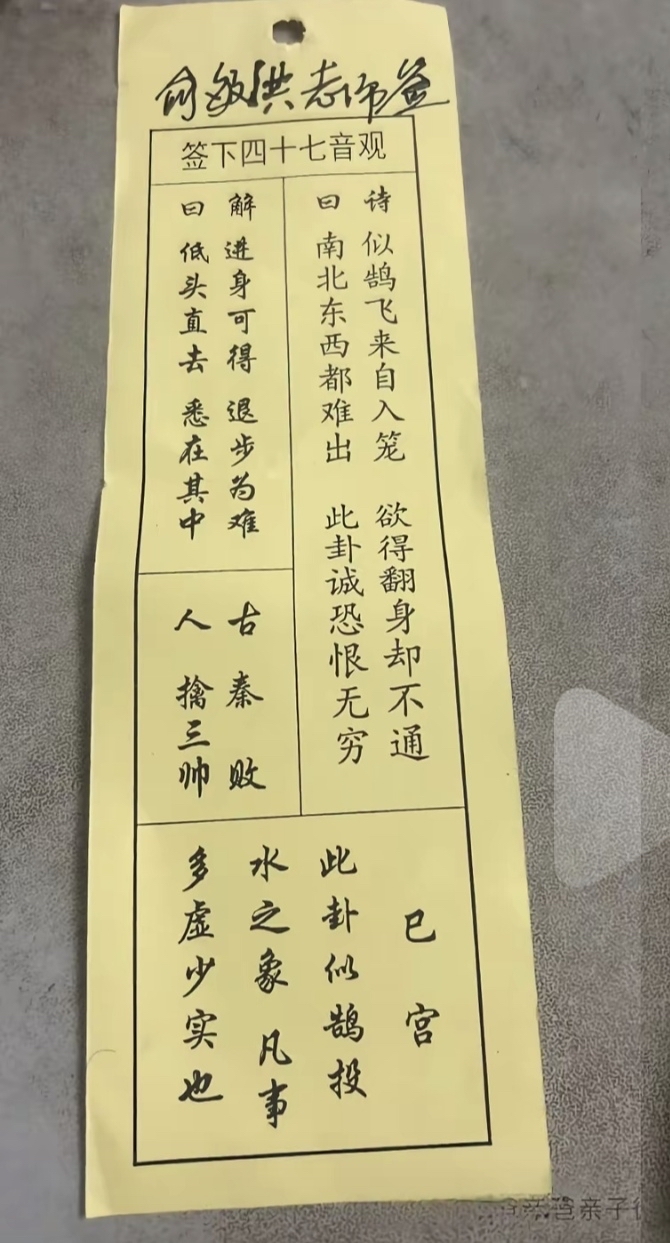 俞敏洪老师签
观音七十四下签
诗 似鹄飞来自入笼 欲得翻身却不通
曰 南北东西都难出 此卦诚恐恨无穷
解 进身可得 退步为难
曰 低头直去 悉在其中
古 秦 败
人 擒三帅
巳宫
此卦似鹄投
水之象 凡事
多虚少实也
爸亲子